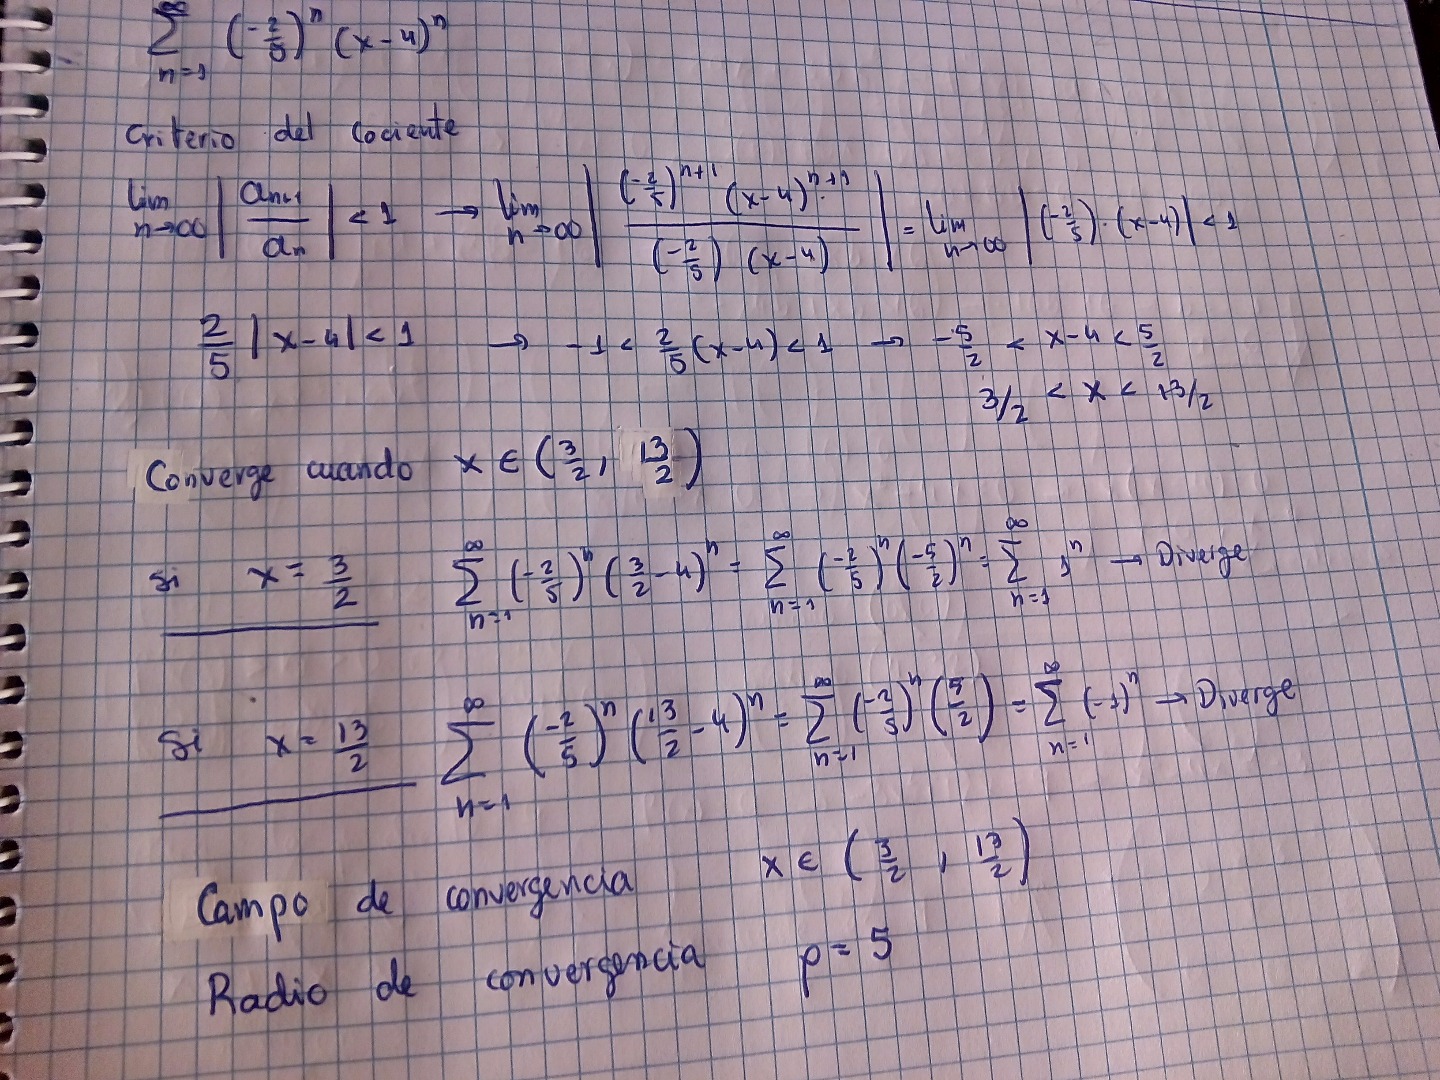 ∑_{n=1}^{∞} (-2/5)^n (x-4)^n
Criterio del cociente
lim_{n→∞} |a_{n+1}/a_n| < 1 → lim_{n→∞} |((-2/5)^{n+1} (x-4)^{n+1})/((-2/5) (x-4))| = lim_{n→∞} |(-2/5)·(x-4)| < 1
2/5 |x-4| < 1 → -1 < 2/5(x-4) < 1 → -5/2 < x-4 < 5/2
3/2 < x < 13/2
Converge cuando x ∈ (3/2, 13/2)
Si x = 3/2 ∑_{n=1}^{∞} (-2/5)^n (3/2-4)^n = ∑_{n=1}^{∞} (-2/5)^n (-5/2)^n = ∑_{n=1}^{∞} 1^n → Diverge
Si x = 13/2 ∑_{n=1}^{∞} (-2/5)^n (13/2-4)^n = ∑_{n=1}^{∞} (-2/5)^n (5/2) = ∑_{n=1}^{∞} (-1)^n → Diverge
Campo de convergencia x ∈ (3/2, 13/2)
Radio de convergencia ρ = 5